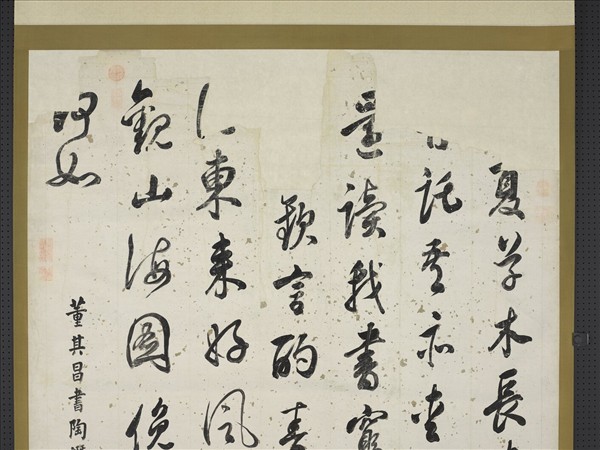 夏草木長
託吾亦愛
還讀我書窮
歡言酌春
東來好風
觀山海圖俛
何如
董其昌書陶